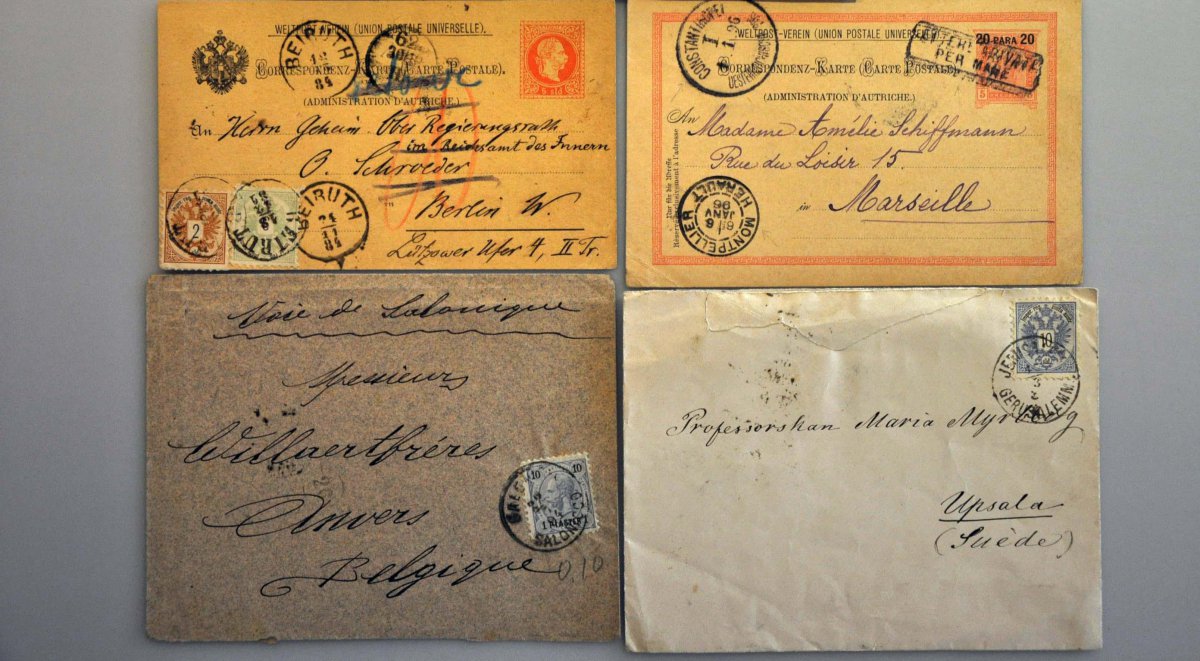 WELTPOST-VEREIN (UNION POSTALE UNIVERSELLE).
CORRESPONDENZ-KARTE (CARTE POSTALE).
(ADMINISTRATION D'AUTRICHE.)
BEIRUTH
84
62
An Herrn Geheim. Ober Regierungsrath
im Reichsamt des Innern
O. Schroeder
Berlin W.
Lützower Ufer 4, II Tr.
2
BEIRUTH
24
11
84
WELTPOST-VEREIN (UNION POSTALE UNIVERSELLE).
CORRESPONDENZ-KARTE (CARTE POSTALE).
(ADMINISTRATION D'AUTRICHE.)
20 PARA 20
5
CONSTANTINOPEL
I
1.96
LETTERE ARRIVATE
PER MARE
An Madame Amélie Schiffmann
Rue du Loisir 15
in Marseille
Nur für die Adresse
Réservé exclusivement à l'adresse
MONTPELLIER
6
JANV
96
HERAULT
Voie de Salonique
Messieurs
Willaert frères
Anvers
Belgique
10 10
1 PIASTER
0.10
10
GERUSALEMME
Professorskan Maria Myrberg
Upsala
(Suède)